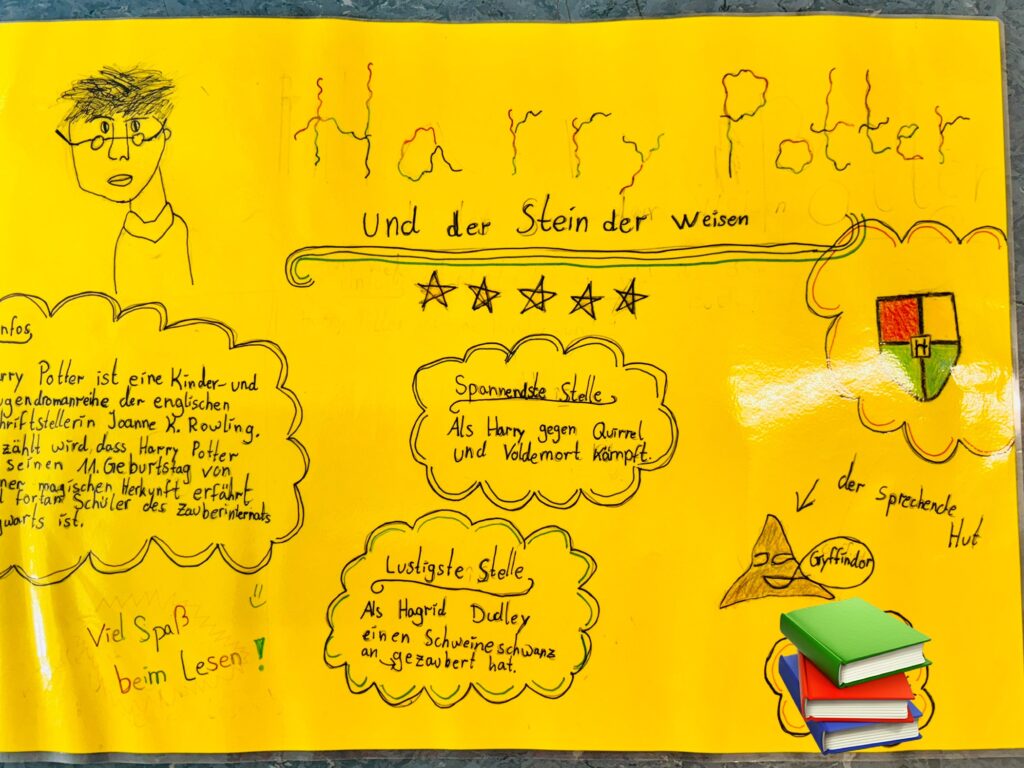 Harry Potter
und der Stein der Weisen
nfos,
rry Potter ist eine Kinder- und
ugendromanreihe der englischen
hriftstellerin Joanne K. Rowling.
zählt wird dass Harry Potter
seinen 11. Geburtstag von
ner magischen Herkunft erfährt
d fortan Schüler des Zauberinternats
gwarts ist.
Spannendste Stelle
Als Harry gegen Quirrel
und Voldemort kämpft.
H
der sprechende
Hut
Gryffindor
Lustigste Stelle
Als Hagrid Dudley
einen Schweineschwanz
an gezaubert hat.
Viel Spaß
beim Lesen!